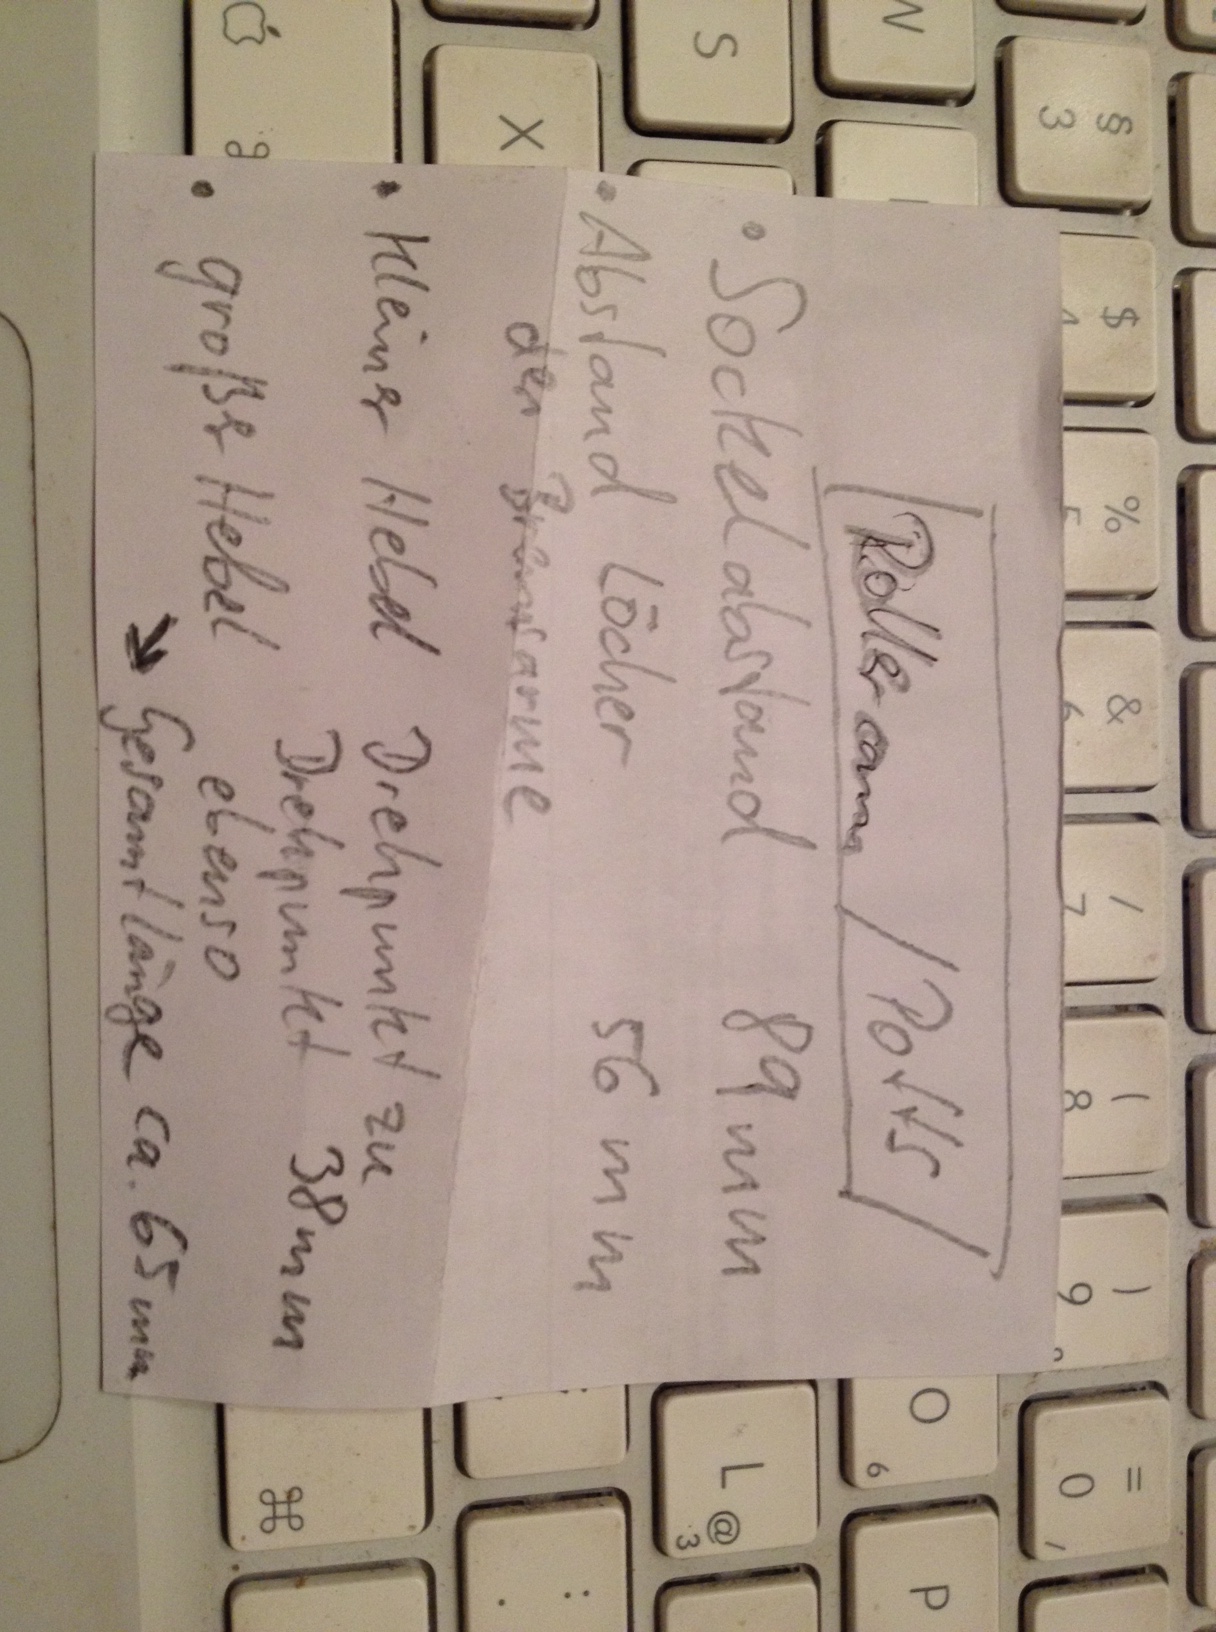 Rollercam / Potts
• Sockelabstand 89 mm
• Abstand Löcher 56 mm
der Bremsarme
• kleiner Hebel Drehpunkt zu
Drehpunkt 38mm
• großer Hebel ebenso
→ Gesamtlänge ca. 65mm
W
S
X
§
3
$
4
%
5
&
6
/
7
(
8
)
9
=
0
O
6
L
@
3
P
:
.
⌘